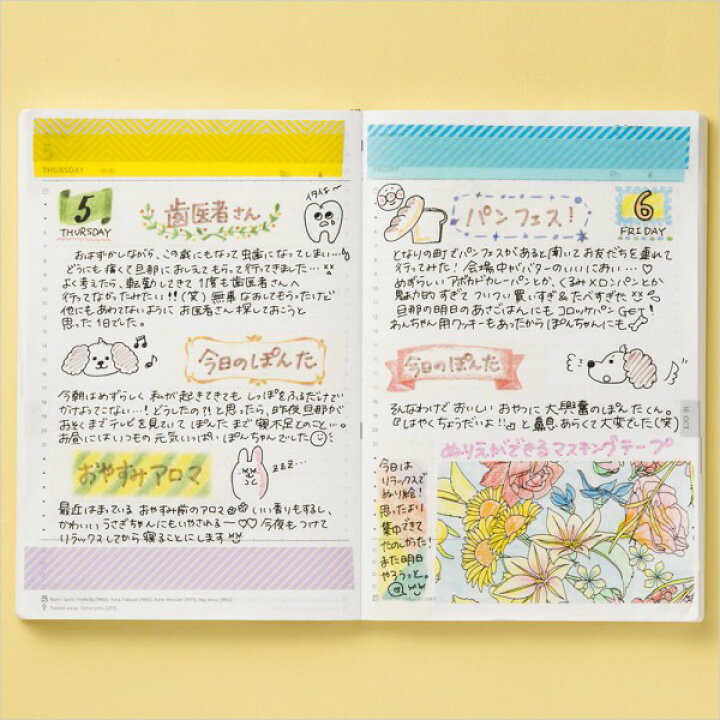 THURSDAY
5
THURSDAY
歯医者さん
イタイよ〜
おはずかしながら、この歳にもなって虫歯になってしまい…
どうにも痛くて旦那におしえてもらって行ってきました…
よく考えたら、転勤してきて1度も歯医者さんへ
行ってなかったみたい!!(笑) 無事なおしてもらったけど
他にもあわてないように お医者さん探しておこうと
思った1日でした。
今日のぽんた
今朝はめずらしく 私が起きてきても しっぽをふるだけで
かけよってこない…! どうしたの?!と思ったら、昨夜旦那が
おそくまでテレビを見ていて ぽんたまで寝不足とのこと…。
お昼にはいつもの 元気いっぱい ぽんちゃんでした
おやすみアロマ
zzz...
最近はまっている おやすみ前のアロマ いい香りもするし、
かわいいうさぎちゃんにもいやされる〜♡♡ 今夜もつけて
リラックスしてから寝ることにします
パンフェス!
6
FRIDAY
となりの町でパンフェスがあると聞いてお友だちを連れて
行ってみた! 会場中がバターのいいにおい…♡
めずらしいアボカドカレーパンとか、くるみ×ロンパンとか
魅力的すぎて ついつい 買いすぎ&たべすぎた
旦那の明日のあさごはんにもコロッケパン GET!
わんちゃん用クッキーもあったから ぽんちゃんにも
今日のぽんた
そんなわけで おいしい おやつに 大興奮のぽんたくん。
『はやくちょうだいよ!!』と鼻息あらくて大変でした(笑)
ぬりえができるマスキングテープ
今日は
リラックスで
ぬり絵!
思ったより
集中できて
たのしかった!
また明日
やろうっと。
10 OCT